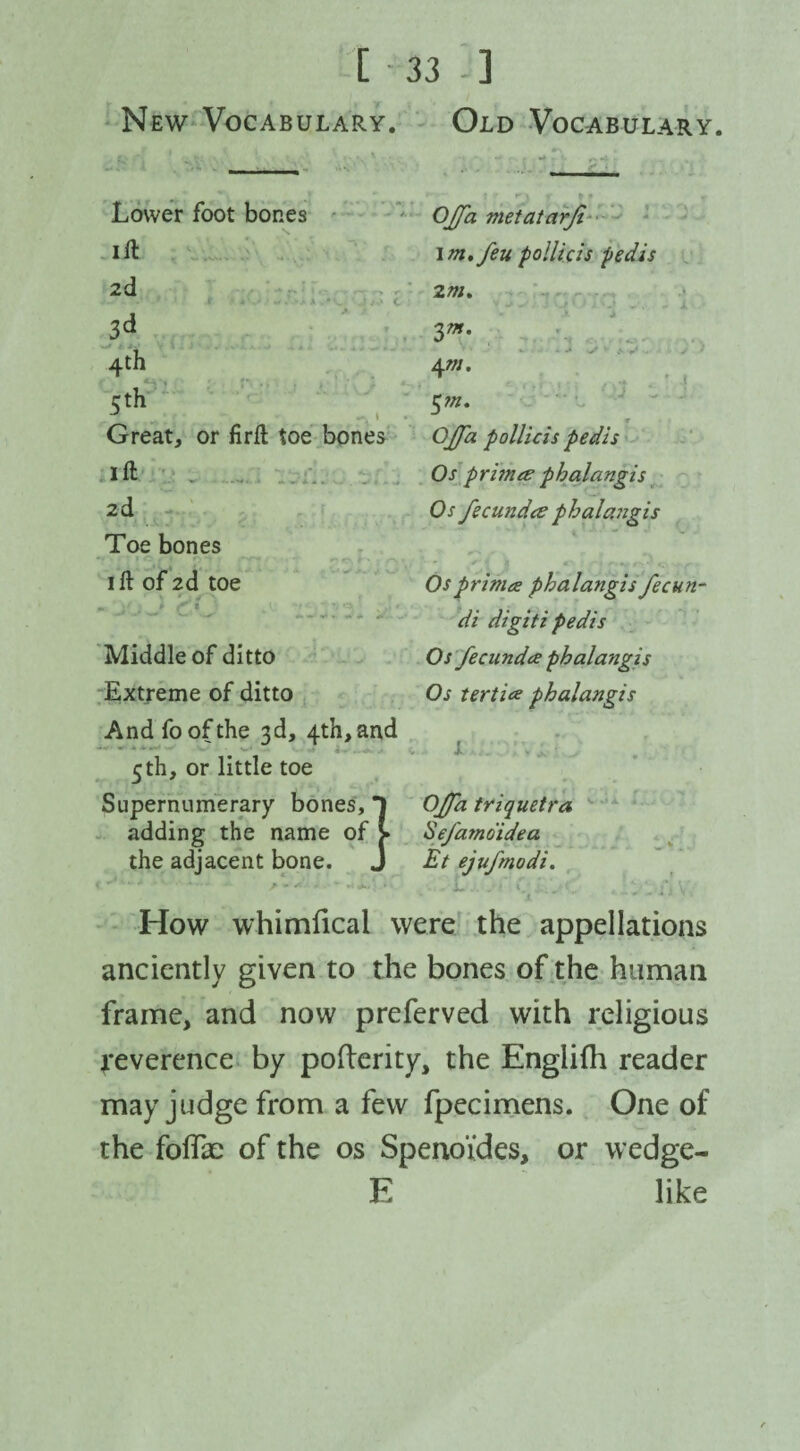 [ 33 ]
New Vocabulary. Old Vocabulary.
Lower foot bones Oſſa metatarſi
1ſt 1m. ſeu pollicis pedis
2d 2m.
3d 3m.
4th 4m.
5th 5m.
Great, or firſt toe bones Oſſa pollicis pedis
1ſt Os primæ phalangis
2d Os ſecundæ phalangis
Toe bones
1ſt of 2d toe Os primæ phalangis ſecun-
di digiti pedis
Middle of ditto Os ſecundæ phalangis
Extreme of ditto Os tertiæ phalangis
And ſo of the 3d, 4th, and
5th, or little toe
Supernumerary bones, } Oſſa triquetra
adding the name of } Seſamoïdea
the adjacent bone. } Et ejuſmodi.
How whimſical were the appellations
anciently given to the bones of the human
frame, and now preſerved with religious
reverence by poſterity, the Engliſh reader
may judge from a few ſpecimens. One of
the foſſæ of the os Spenoïdes, or wedge-
E like